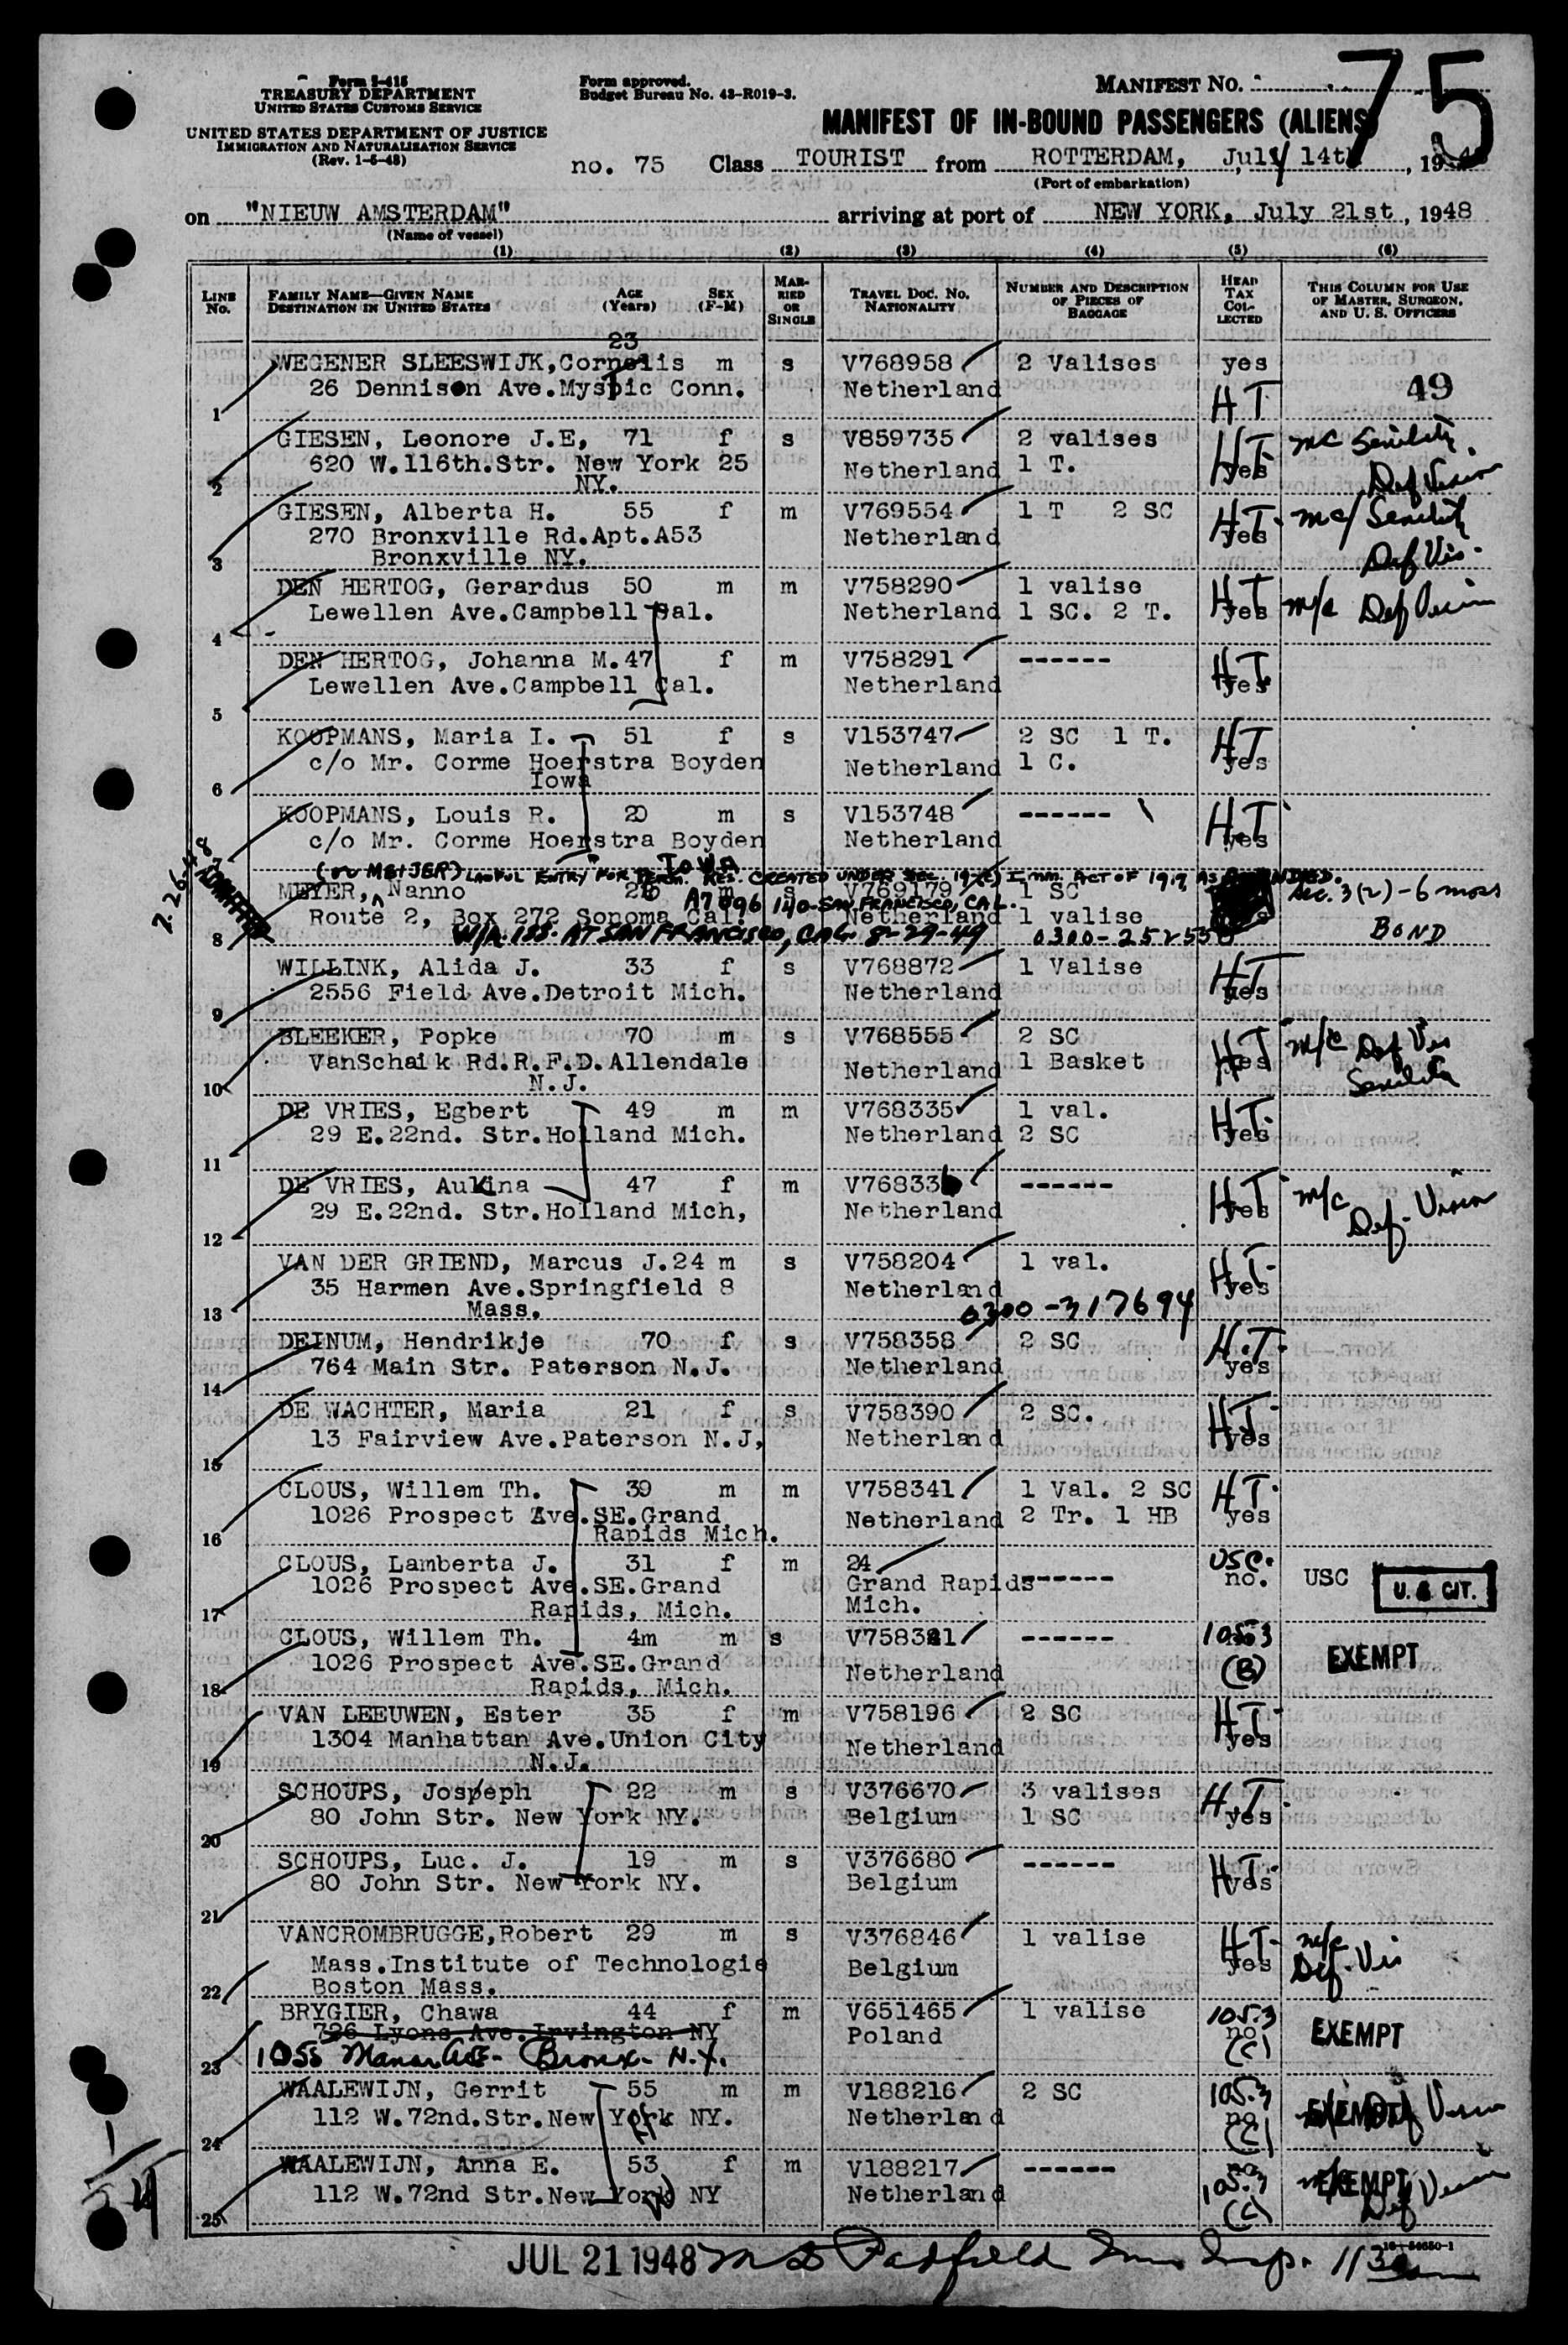 75
Form I-415
TREASURY DEPARTMENT
UNITED STATES CUSTOMS SERVICE
UNITED STATES DEPARTMENT OF JUSTICE
IMMIGRATION AND NATURALIZATION SERVICE
(Rev. 1-5-48)
Form approved.
Budget Bureau No. 43-R019-3.
MANIFEST NO.
MANIFEST OF IN-BOUND PASSENGERS (ALIENS)
no. 75 Class TOURIST from ROTTERDAM, July 14th, 19
(Port of embarkation)
on "NIEUW AMSTERDAM" arriving at port of NEW YORK, July 21st, 1948
(Name of vessel)
(1) (2) (3) (4) (5) (6)
LINE No. FAMILY NAME—GIVEN NAME DESTINATION IN UNITED STATES AGE (Years) SEX (F-M) MARRIED OR SINGLE TRAVEL DOC. NO. NATIONALITY NUMBER AND DESCRIPTION OF PIECES OF BAGGAGE HEAD TAX COLLECTED THIS COLUMN FOR USE OF MASTER, SURGEON, AND U. S. OFFICERS
23
WEGENER SLEESWIJK, Cornelis m s V768958 2 Valises yes
1 26 Dennison Ave. Myspic Conn. Netherland HT 49
GIESEN, Leonore J.E, 71 f s V859735 2 valises HT mc Senility
2 620 W.116th.Str. New York 25 Netherland 1 T. yes Def Vision
NY.
GIESEN, Alberta H. 55 f m V769554 1 T 2 SC HT mc/ Senility
270 Bronxville Rd.Apt.A53 Netherland yes Def Vis.
3 Bronxville NY.
DEN HERTOG, Gerardus 50 m m V758290 1 valise HT
4 Lewellen Ave.Campbell Cal. Netherland 1 SC. 2 T. yes m/c Def Vision
DEN HERTOG, Johanna M. 47 f m V758291 ------ HT
5 Lewellen Ave.Campbell Cal. Netherland yes
KOOPMANS, Maria I. 51 f s V153747 2 SC 1 T. HT
c/o Mr. Corme Hoerstra Boyden Netherland 1 C. yes
6 Iowa
KOOPMANS, Louis R. 20 m s V153748 ------ HT
7 c/o Mr. Corme Hoerstra Boyden Netherland yes
" Iowa
(or MEIJER) LAWFUL ENTRY FOR PERM. RES. CREATED UNDER SEC. 19(c) IMM. ACT OF 1917, AS AMENDED.
MEYER, Nanno m s V769179 1 SC Sec. 3(2)-6 mos
A7 096 140-SAN FRANCISCO, CAL.
8 Route 2, Box 272 Sonoma Cal. Netherland 1 valise BOND
7-26-48 ADMITTED
W/A ISS. AT SAN FRANCISCO, CAL. 8-29-49 0300-252538
WILLINK, Alida J. 33 f s V768872 1 Valise HT
9 2556 Field Ave.Detroit Mich. Netherland yes
BLEEKER, Popke 70 m s V768555 2 SC HT m/c Def Vis
VanSchaik Rd.R.F.D.Allendale Netherland 1 Basket yes Senility
10 N.J.
DE VRIES, Egbert 49 m m V768335 1 val. HT
11 29 E.22nd. Str.Holland Mich. Netherland 2 SC yes
DE VRIES, Aukina 47 f m V768336 ------ HT m/c
12 29 E.22nd. Str.Holland Mich, Netherland yes Def. Vision
VAN DER GRIEND, Marcus J. 24 m s V758204 1 val. HT
35 Harmen Ave.Springfield 8 Netherland yes
13 Mass. 0300-317694
DEINUM, Hendrikje 70 f s V758358 2 SC H.T.
14 764 Main Str. Paterson N.J. Netherland yes
DE WACHTER, Maria 21 f s V758390 2 SC. HT
15 13 Fairview Ave.Paterson N.J, Netherland yes
CLOUS, Willem Th. 39 m m V758341 1 Val. 2 SC HT
1026 Prospect Ave.SE.Grand Netherland 2 Tr. 1 HB yes
16 Rapids Mich.
CLOUS, Lamberta J. 31 f m 24 ------ USC. USC U. S. CIT.
1026 Prospect Ave.SE.Grand Grand Rapids no.
17 Rapids, Mich. Mich.
CLOUS, Willem Th. 4m m s V758321 ------ 105.3 EXEMPT
1026 Prospect Ave.SE.Grand Netherland (B)
18 Rapids, Mich.
VAN LEEUWEN, Ester 35 f m V758196 2 SC HT
1304 Manhattan Ave.Union City Netherland yes
19 N.J.
SCHOUPS, Joseph 22 m s V376670 3 valises H.T.
20 80 John Str. New York NY. Belgium 1 SC yes
SCHOUPS, Luc. J. 19 m s V376680 ------ HT
21 80 John Str. New York NY. Belgium yes
VANCROMBRUGGE,Robert 29 m s V376846 1 valise HT m/c
Mass.Institute of Technologie Belgium yes Def. Vis
22 Boston Mass.
BRYGIER, Chawa 44 f m V651465 1 valise 105.3 EXEMPT
726 Lyons Ave.Irvington NY Poland no (C)
23 1055 Manor Ave- Bronx- N.Y.
WAALEWIJN, Gerrit 55 m m V188216 2 SC 105.3 EXEMPT
24 112 W.72nd.Str.New York NY. Netherland no (C) Def Vision
WAALEWIJN, Anna E. 53 f m V188217 ------ no EXEMPT
25 112 W.72nd Str.New York NY Netherland 105.3 (C) Def Vision
JUL 21 1948 M D Padfield Imm Insp.
16—54650-1